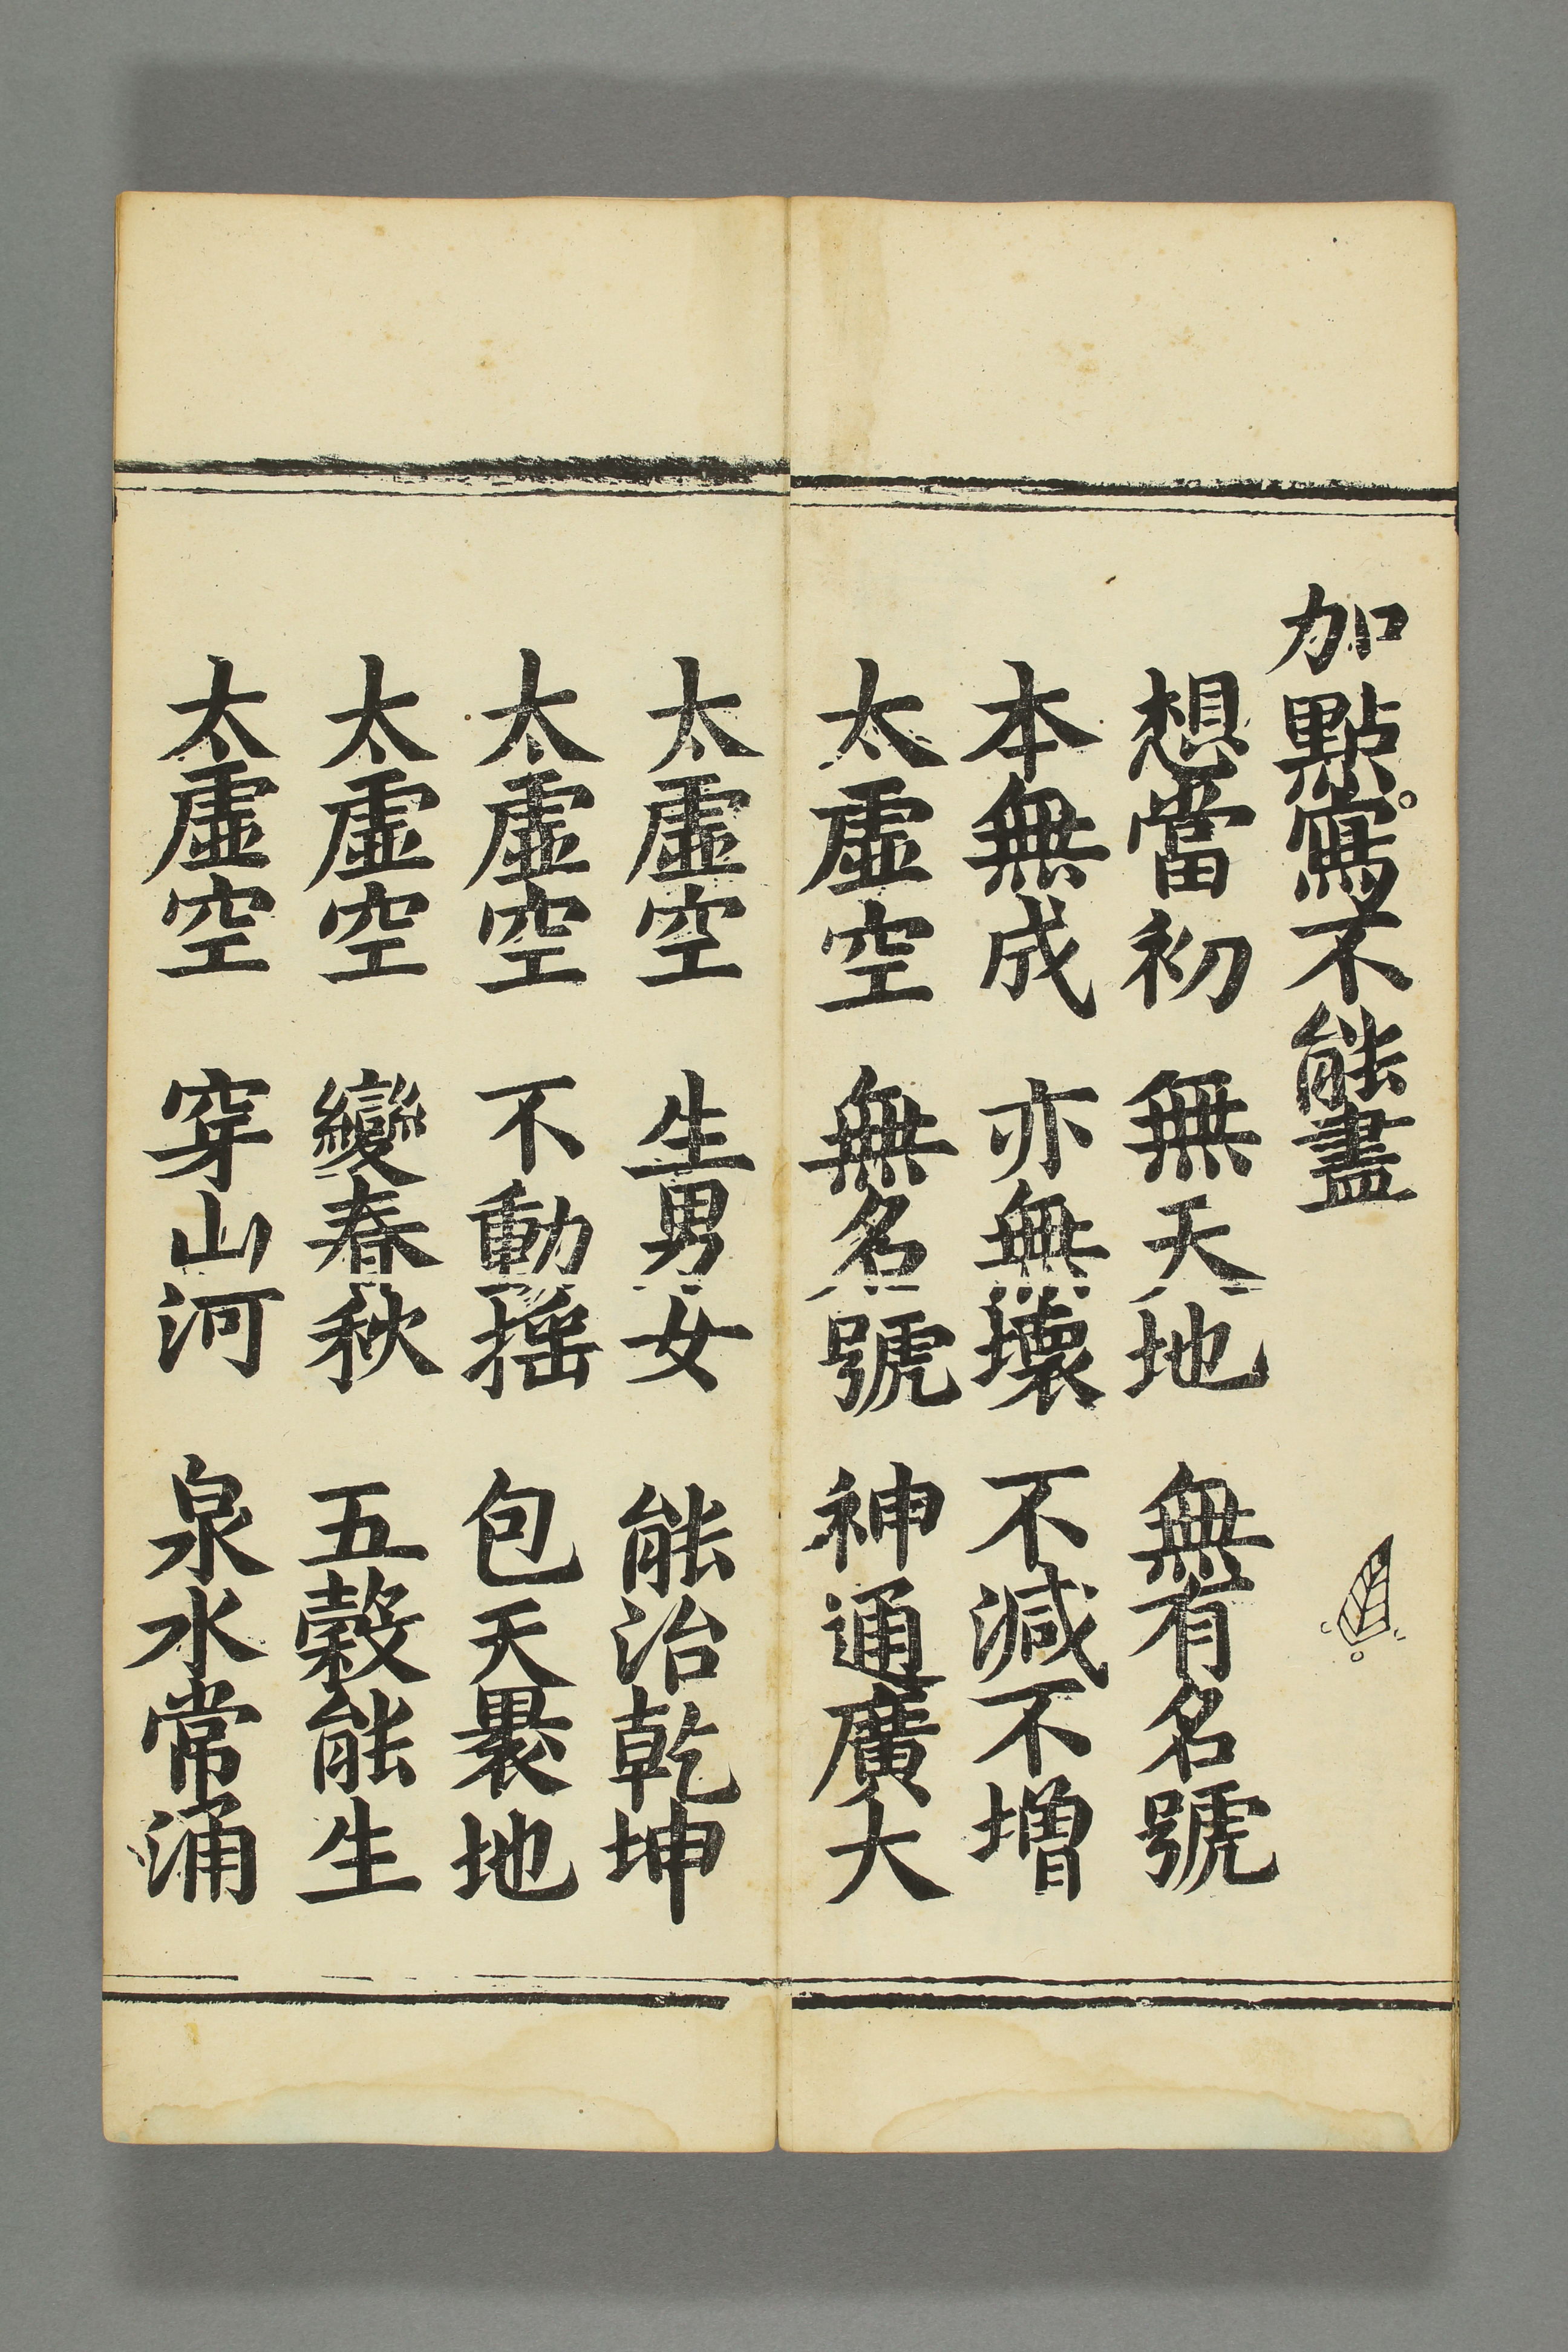 加點。寫不能盡
想當初　無天地　無有名號
本無成　亦無壞　不減不增
太虛空　無名號　神通廣大
太虛空　生男女　能治乾坤
太虛空　不動摇　包天裹地
太虛空　變春秋　五穀能生
太虛空　穿山河　泉水常涌